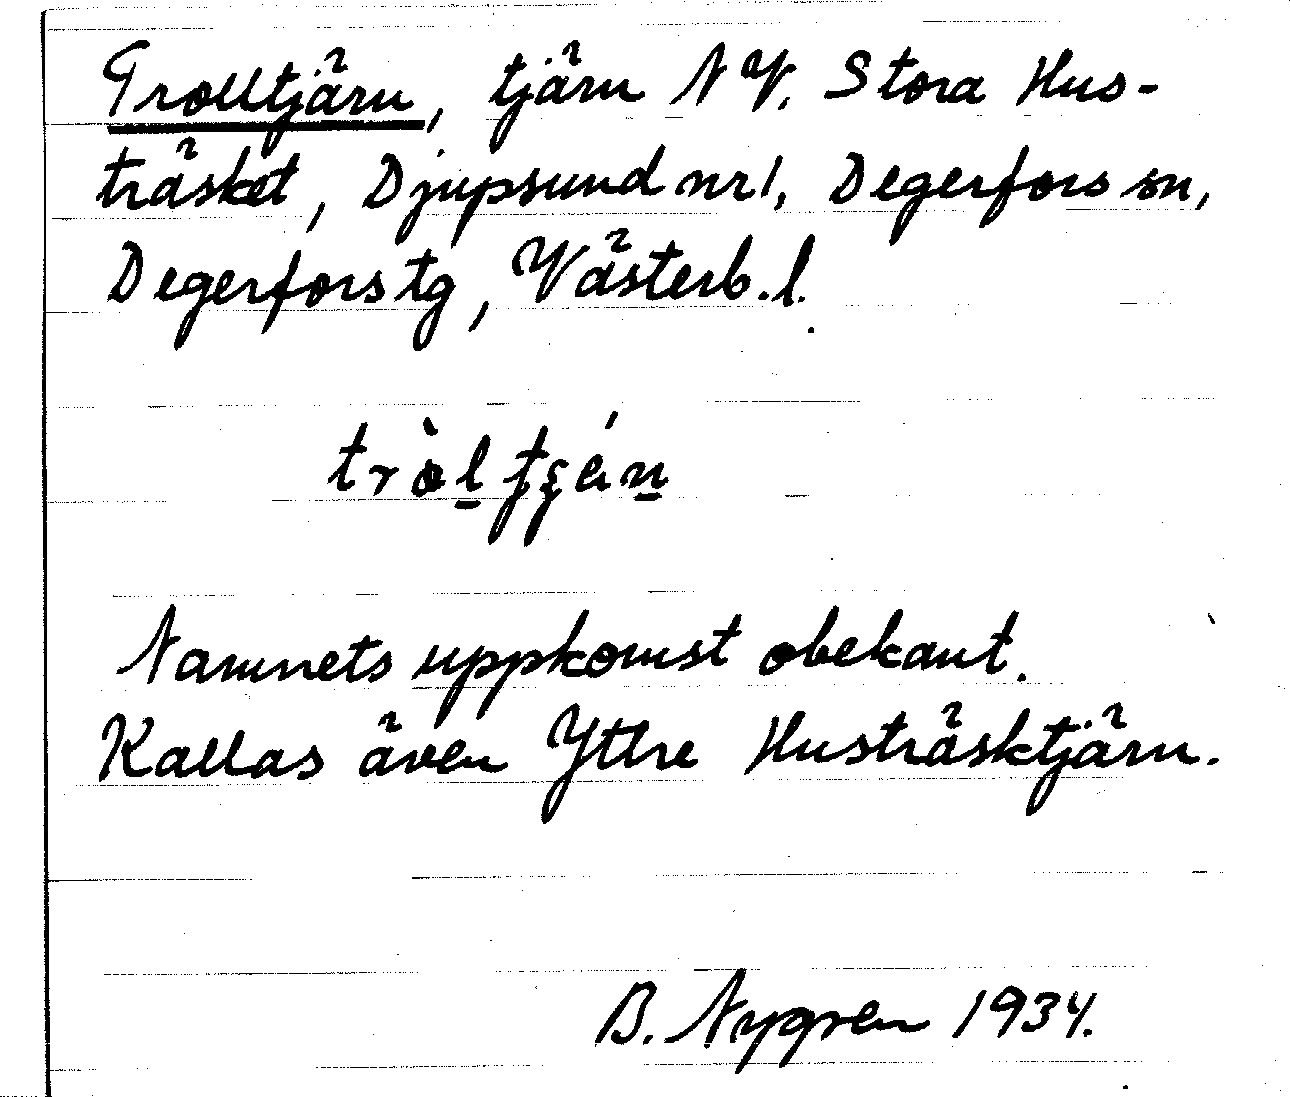 Trolltjärn, tjärn NV. Stora Hus-
träsket, Djupsund nr1, Degerfors sn,
Degerfors tg, Västerb. l.
Namnets uppkomst obekant.
Kallas även Yttre Husträsktjärn.
B. Nygren 1934.